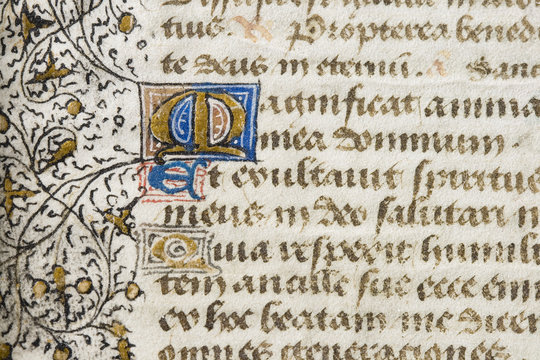 tuis. ℟ Propterea benedi
te deus in eternum. a Sanc
Magnificat anima
mea dominum
Et exultauit spiritus
meus in deo salutari m
Quia respexit humili
tem ancille sue ecce enim
ex hoc beatam me dicen
omnes generationes